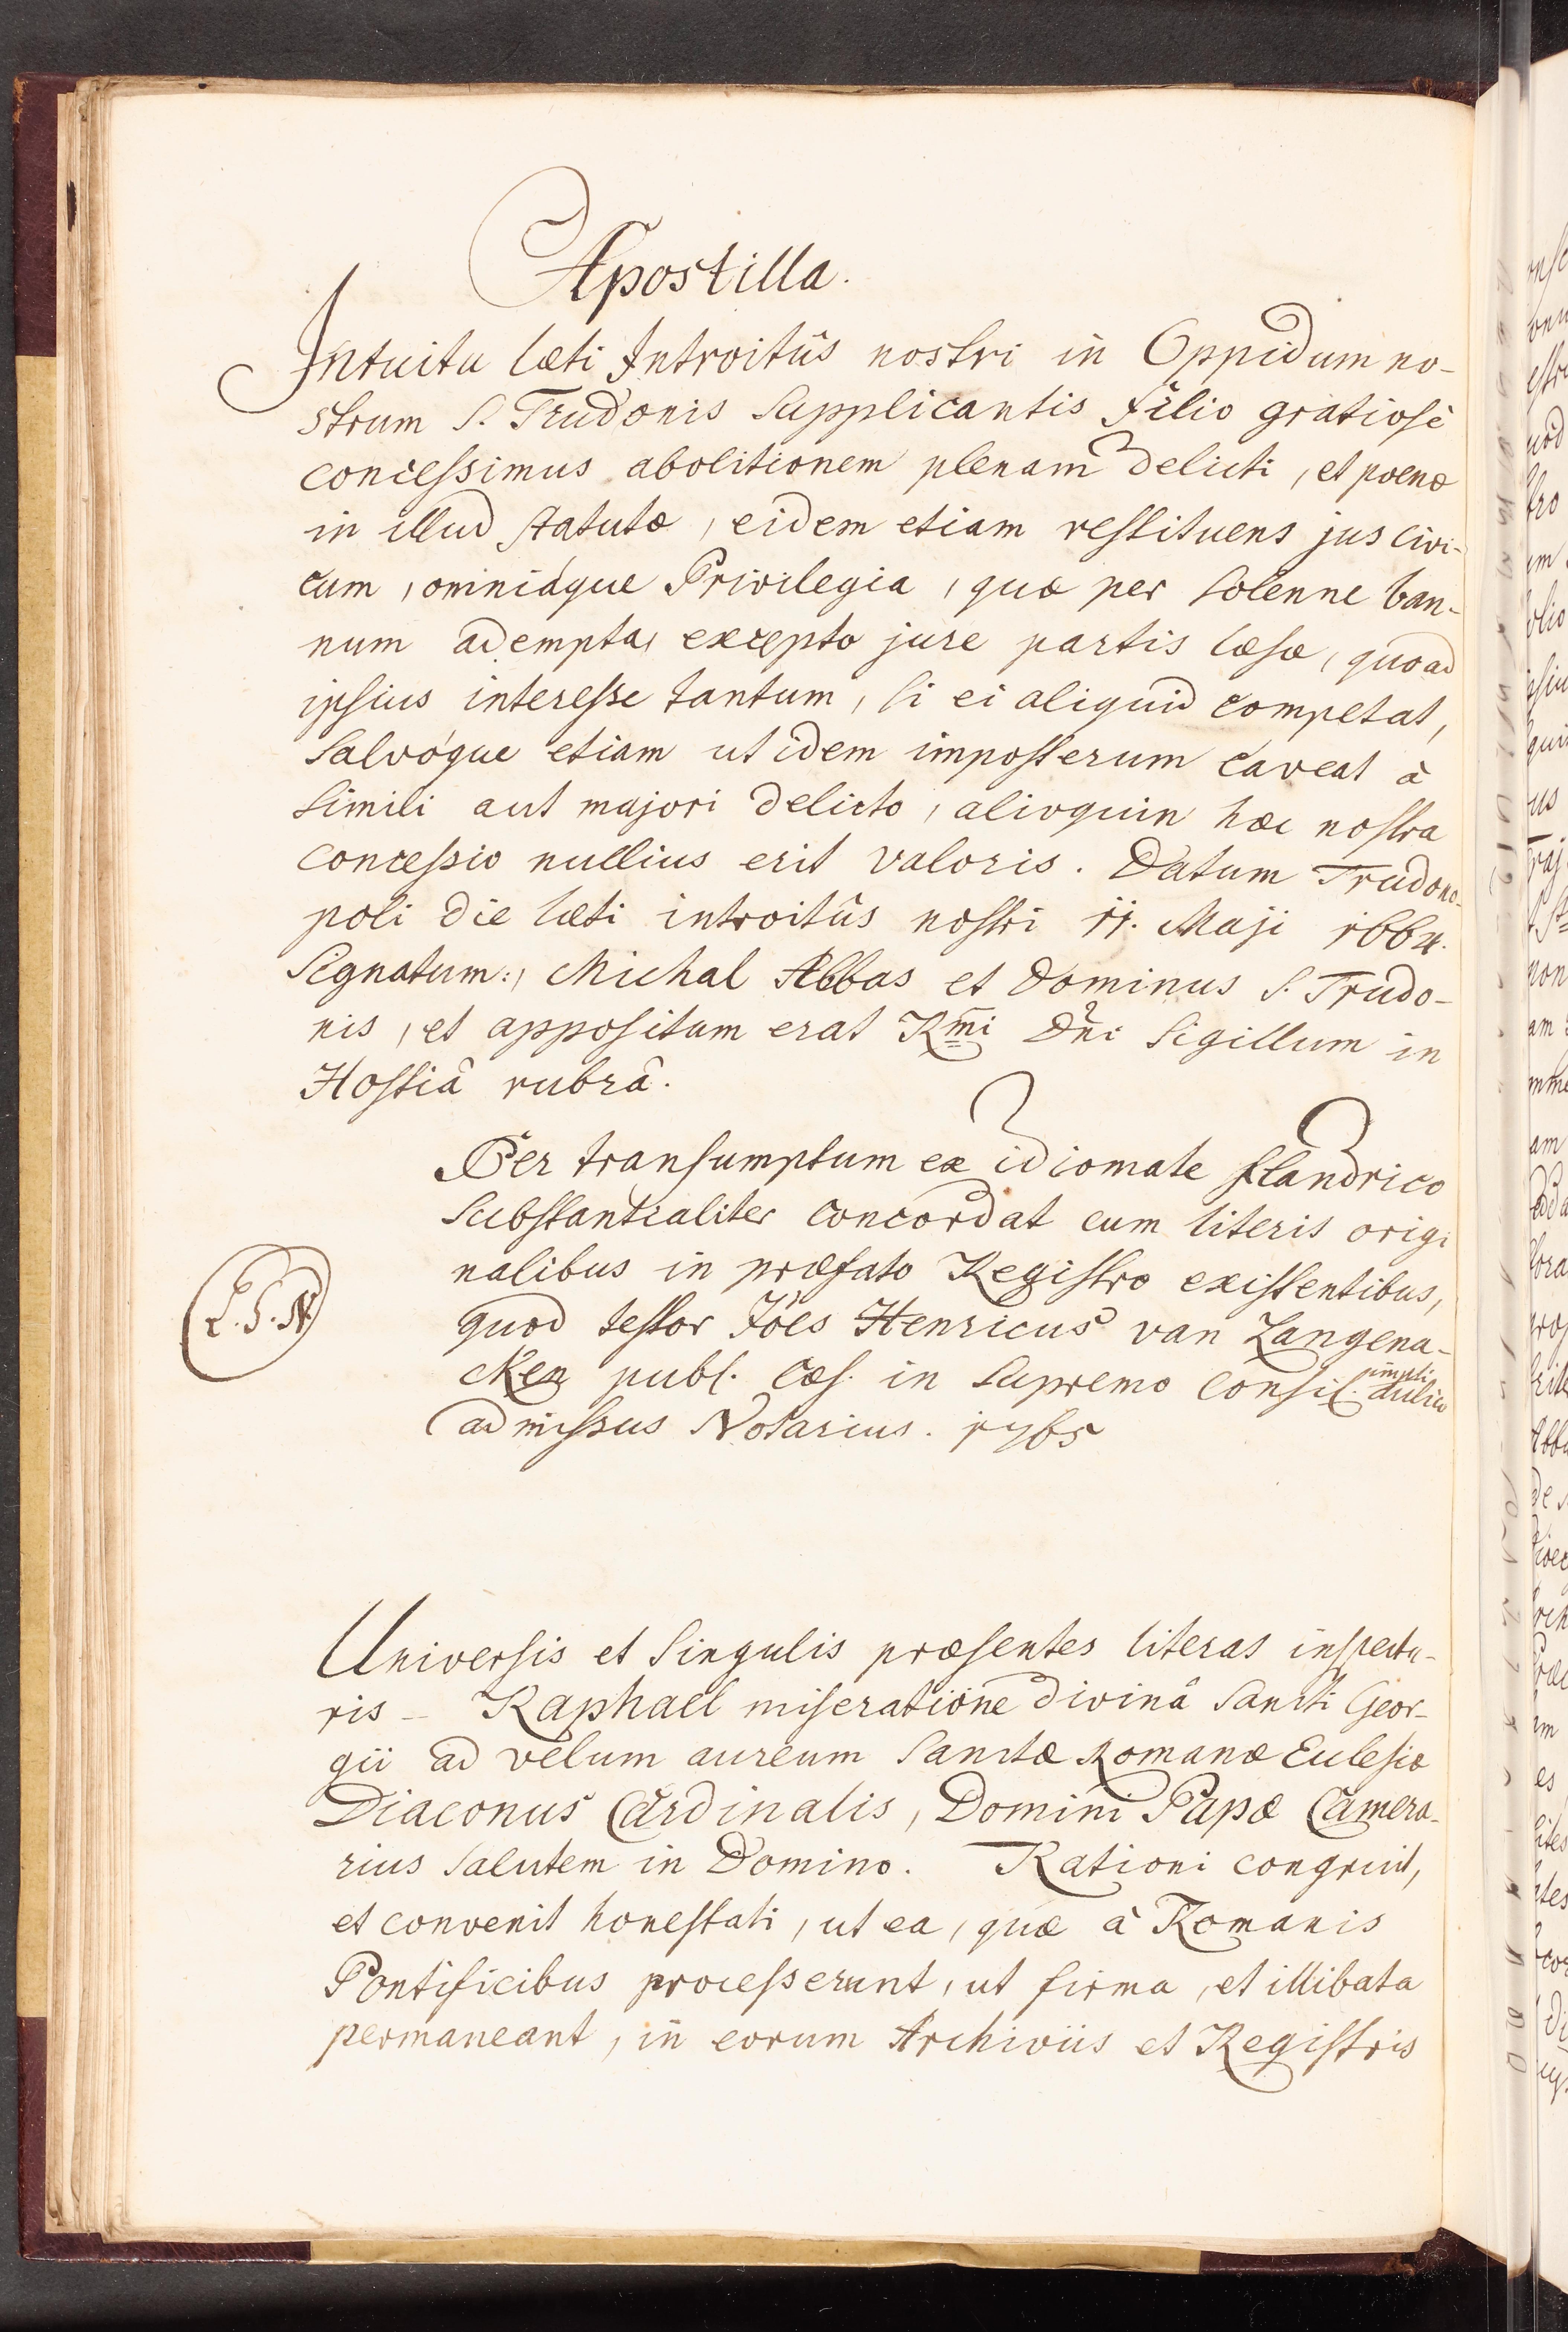 Apostilla.
Intuitu læti Introitûs nostri in Oppidum no-
strum S. Trudonis Supplicantis Filio gratiosè
concessimus abolitionem plenam delicti, et poenæ
in illud statutæ, eidem etiam restituens jus civi-
cum, omniáque Privilegia, quæ per solenne ban-
num adempta, excepto jure partis læsæ, quoad
ipsius interesse tantum, si ei aliquid competat,
Salvóque etiam ut idem imposterum caveat à
Simili aut majori delicto, alioquin hæc nostra
concessio nullius erit valoris. Datum Trudono-
poli die læti introitûs nostri 11. Maji 1664.
Signatum:, Michal Abbas et Dominus S. Trudo-
nis, et appositum erat Rmi Dni Sigillum in
Hostiâ rubrâ.
Per transumptum ex idiomate flandrico
Substantialiter concordat cum literis origi
nalibus in præfato Registro existentibus,
L.S.N.
quod testor Jöes Henricus van Langena-
cken publ. cæs. in Supremo Consil. aulico
admissus Notarius. 1765
Universis et Singulis præsentes literas inspectu-
ris - Raphael miseratione divinâ Sancti Geor-
gii ad velum aureum Sanctæ Romanæ Eclesiæ
Diaconus Cardinalis, Domini Papæ Camera-
rius Salutem in Domino. Rationi congruit,
et convenit honestati, ut ea, quæ à Romanis
Pontificibus processerunt, ut firma, et illibata
permaneant, in eorum Archiviis et Registris